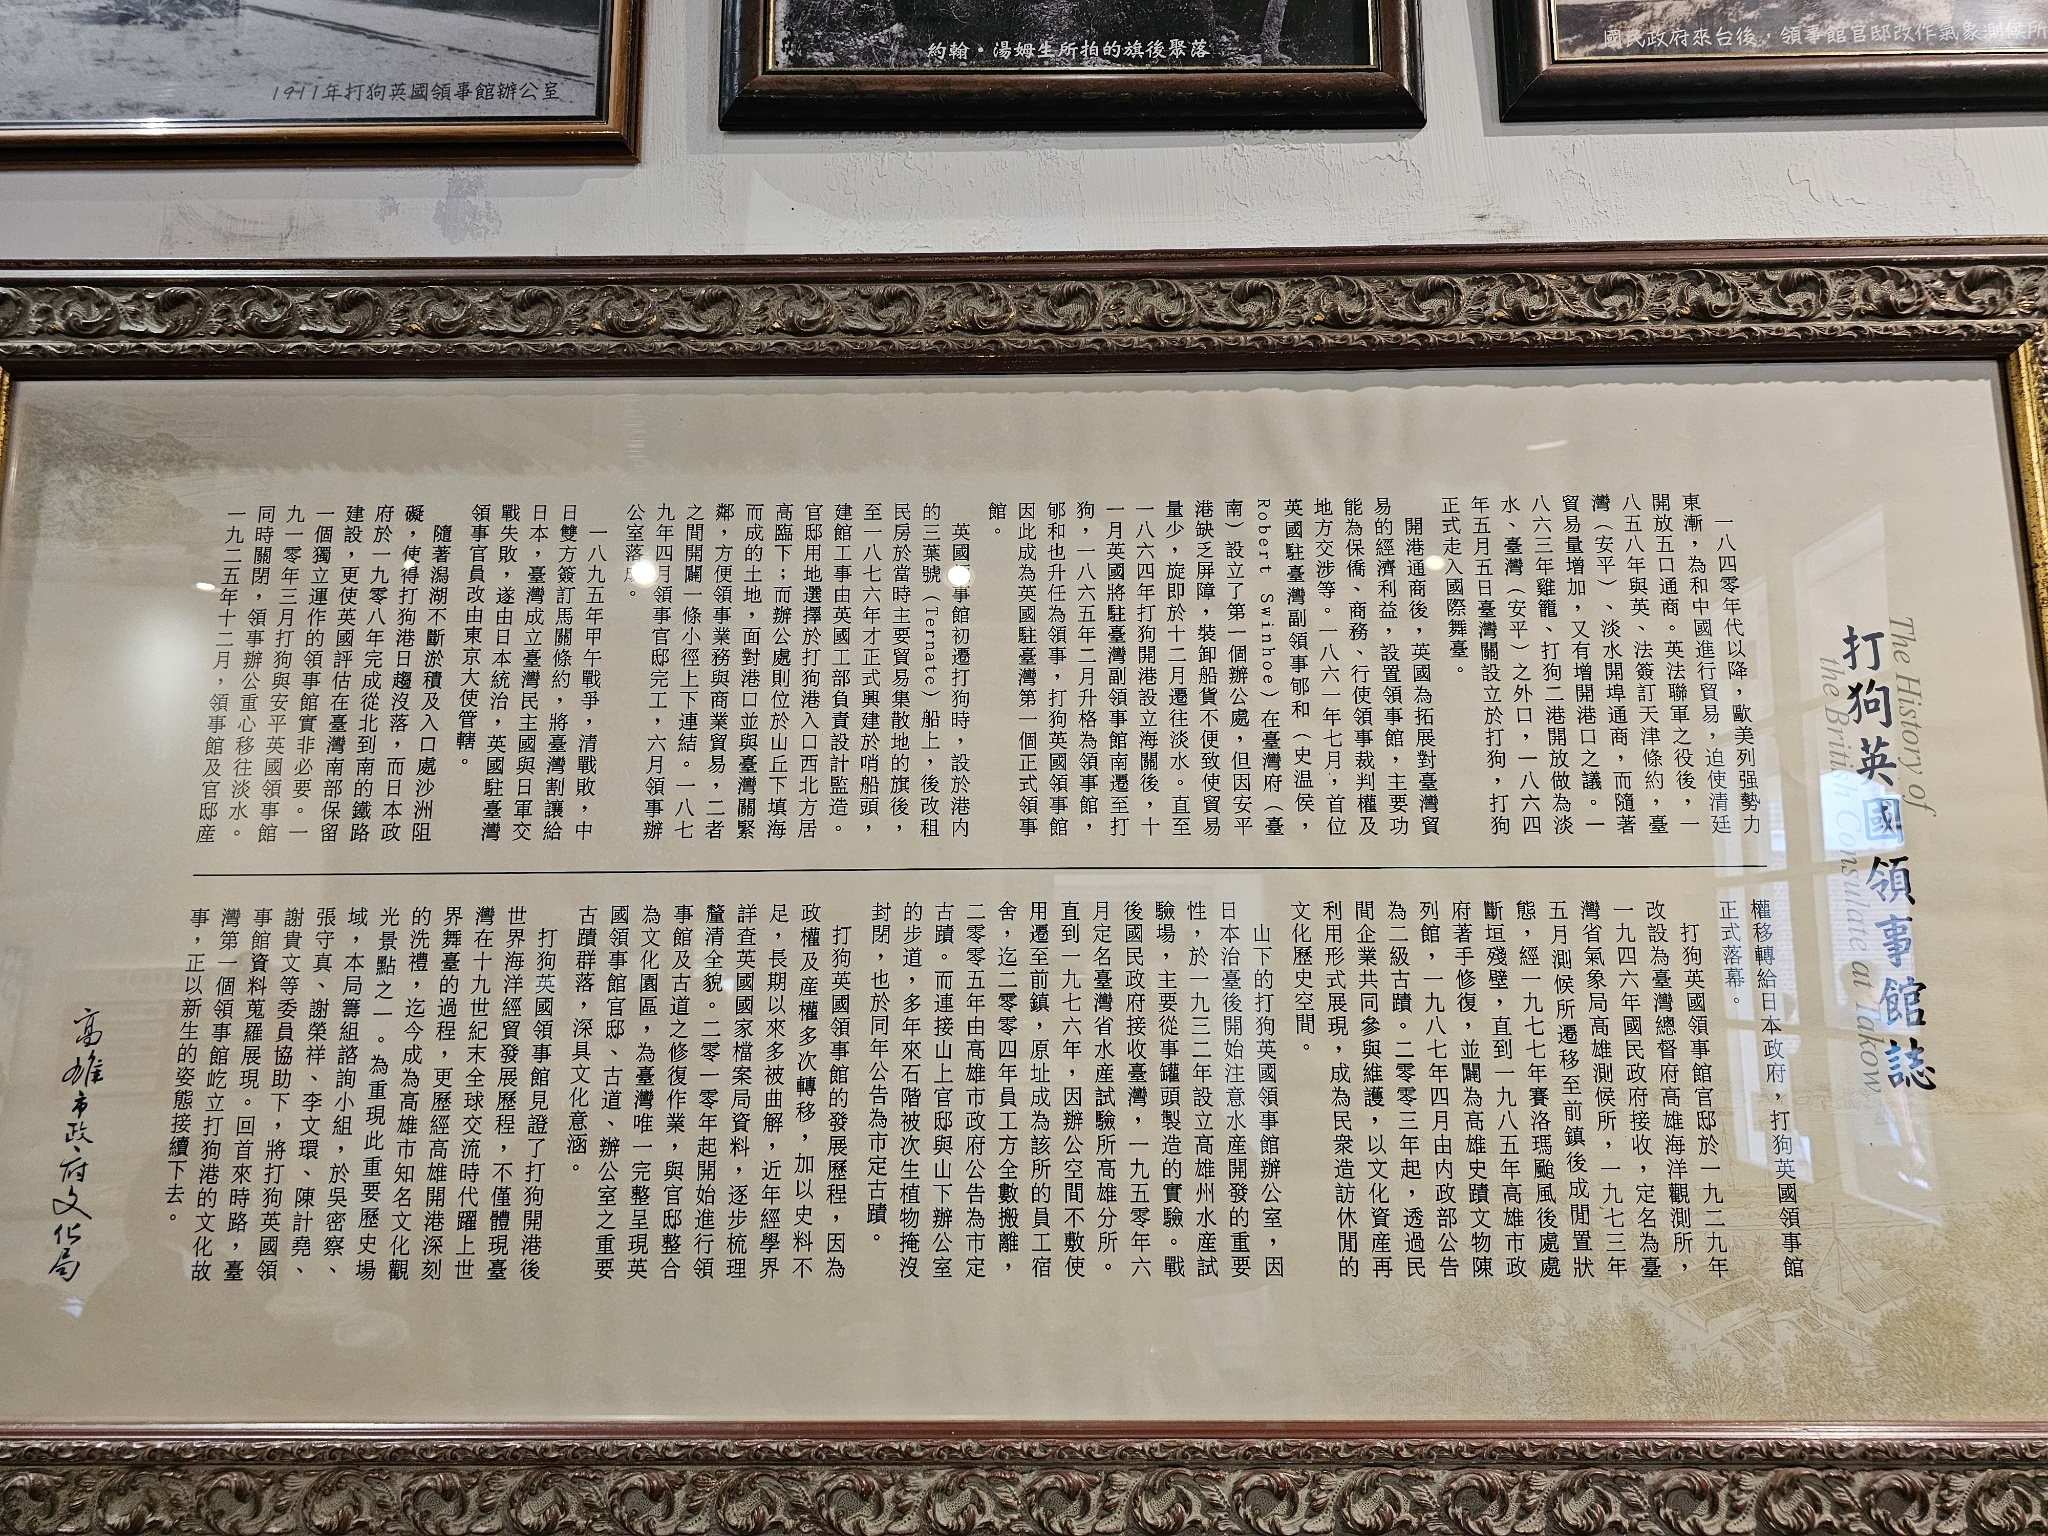 1911年打狗英國領事館辦公室
約翰·湯姆生所拍的旗後聚落
國民政府來台後，領事館官邸改作氣象測候所
The History of
the British Consulate at Takow
打狗英國領事館誌
一八四零年代以降，歐美列强勢力
東漸，為和中國進行貿易，迫使清廷
開放五口通商。英法聯軍之役後，一
八五八年與英、法簽訂天津條約，臺
灣（安平）、淡水開埠通商，而隨著
貿易量增加，又有增開港口之議。一
八六三年雞籠、打狗二港開放做為淡
水、臺灣（安平）之外口，一八六四
年五月五日臺灣關設立於打狗，打狗
正式走入國際舞臺。
開港通商後，英國為拓展對臺灣貿
易的經濟利益，設置領事館，主要功
能為保僑、商務、行使領事裁判權及
地方交涉等。一八六一年七月，首位
英國駐臺灣副領事郇和（史温侯，
Robert Swinhoe）在臺灣府（臺
南）設立了第一個辦公處，但因安平
港缺乏屏障，裝卸船貨不便致使貿易
量少，旋即於十二月遷往淡水。直至
一八六四年打狗開港設立海關後，十
一月英國將駐臺灣副領事館南遷至打
狗，一八六五年二月升格為領事館，
郇和也升任為領事，打狗英國領事館
因此成為英國駐臺灣第一個正式領事
館。
英國領事館初遷打狗時，設於港內
的三葉號（Ternate）船上，後改租
民房於當時主要貿易集散地的旗後，
至一八七六年才正式興建於哨船頭，
建館工事由英國工部負責設計監造。
官邸用地選擇於打狗港入口西北方居
高臨下；而辦公處則位於山丘下填海
而成的土地，面對港口並與臺灣關緊
鄰，方便領事業務與商業貿易，二者
之間開闢一條小徑上下連結。一八七
九年四月領事官邸完工，六月領事辦
公室落成。
一八九五年甲午戰爭，清戰敗，中
日雙方簽訂馬關條約，將臺灣割讓給
日本，臺灣成立臺灣民主國與日軍交
戰失敗，遂由日本統治，英國駐臺灣
領事官員改由東京大使管轄。
隨著潟湖不斷淤積及入口處沙洲阻
礙，使得打狗港日趨沒落，而日本政
府於一九零八年完成從北到南的鐵路
建設，更使英國評估在臺灣南部保留
一個獨立運作的領事館實非必要。一
九一零年三月打狗與安平英國領事館
同時關閉，領事辦公重心移往淡水。
一九二五年十二月，領事館及官邸產
權移轉給日本政府，打狗英國領事館
正式落幕。
打狗英國領事館官邸於一九二九年
改設為臺灣總督府高雄海洋觀測所，
一九四六年國民政府接收，定名為臺
灣省氣象局高雄測候所，一九七三年
五月測候所遷移至前鎮後成閒置狀
態，經一九七七年賽洛瑪颱風後處處
斷垣殘壁，直到一九八五年高雄市政
府著手修復，並闢為高雄史蹟文物陳
列館，一九八七年四月由內政部公告
為二級古蹟。二零零三年起，透過民
間企業共同參與維護，以文化資產再
利用形式展現，成為民衆造訪休閒的
文化歷史空間。
山下的打狗英國領事館辦公室，因
日本治臺後開始注意水產開發的重要
性，於一九三二年設立高雄州水產試
驗場，主要從事罐頭製造的實驗。戰
後國民政府接收臺灣，一九五零年六
月定名臺灣省水產試驗所高雄分所。
直到一九七六年，因辦公空間不敷使
用遷至前鎮，原址成為該所的員工宿
舍，迄二零零四年員工方全數搬離，
二零零五年由高雄市政府公告為市定
古蹟。而連接山上官邸與山下辦公室
的步道，多年來石階被次生植物掩沒
封閉，也於同年公告為市定古蹟。
打狗英國領事館的發展歷程，因為
政權及產權多次轉移，加以史料不
足，長期以來多被曲解，近年經學界
詳查英國國家檔案局資料，逐步梳理
釐清全貌。二零一零年起開始進行領
事館及古道之修復作業，與官邸整合
為文化園區，為臺灣唯一完整呈現英
國領事館官邸、古道、辦公室之重要
古蹟群落，深具文化意涵。
打狗英國領事館見證了打狗開港後
世界海洋經貿發展歷程，不僅體現臺
灣在十九世紀末全球交流時代躍上世
界舞臺的過程，更歷經高雄開港深刻
的洗禮，迄今成為高雄市知名文化觀
光景點之一。為重現此重要歷史場
域，本局籌組諮詢小組，於吳密察、
張守真、謝榮祥、李文環、陳計堯、
謝貴文等委員協助下，將打狗英國領
事館資料蒐羅展現。回首來時路，臺
灣第一個領事館屹立打狗港的文化故
事，正以新生的姿態接續下去。
高雄市政府文化局